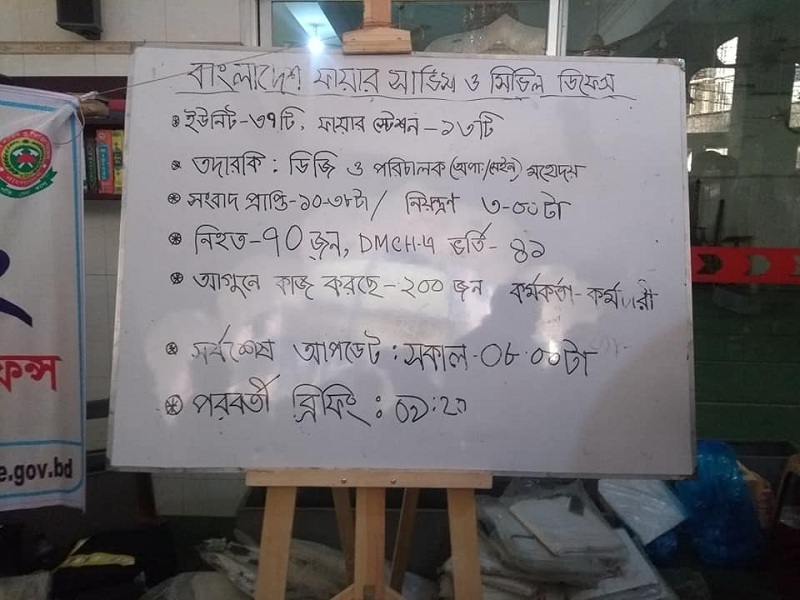 বাংলাদেশ ফায়ার সার্ভিস ও সিভিল ডিফেন্স
ইউনিট-৩৭টি, ফায়ার স্টেশন-১৩টি
তদারকি : ডিজি ও পরিচালক (অপাঃ/মেইন) মহোদয়
সংবাদ প্রাপ্তি-১০-৩৮টা / নিয়ন্ত্রণ ৩-০০টা
নিহত-৭০ জন, DMCH-এ ভর্তি- ৪১
আগুনে কাজ করছে-২০০ জন কর্মকর্তা-কর্মচারী
সর্বশেষ আপডেট : সকাল-০৮.০০টা
পরবর্তী ব্রিফিং : ০৯:২০
ফেন্স
e.gov.bd